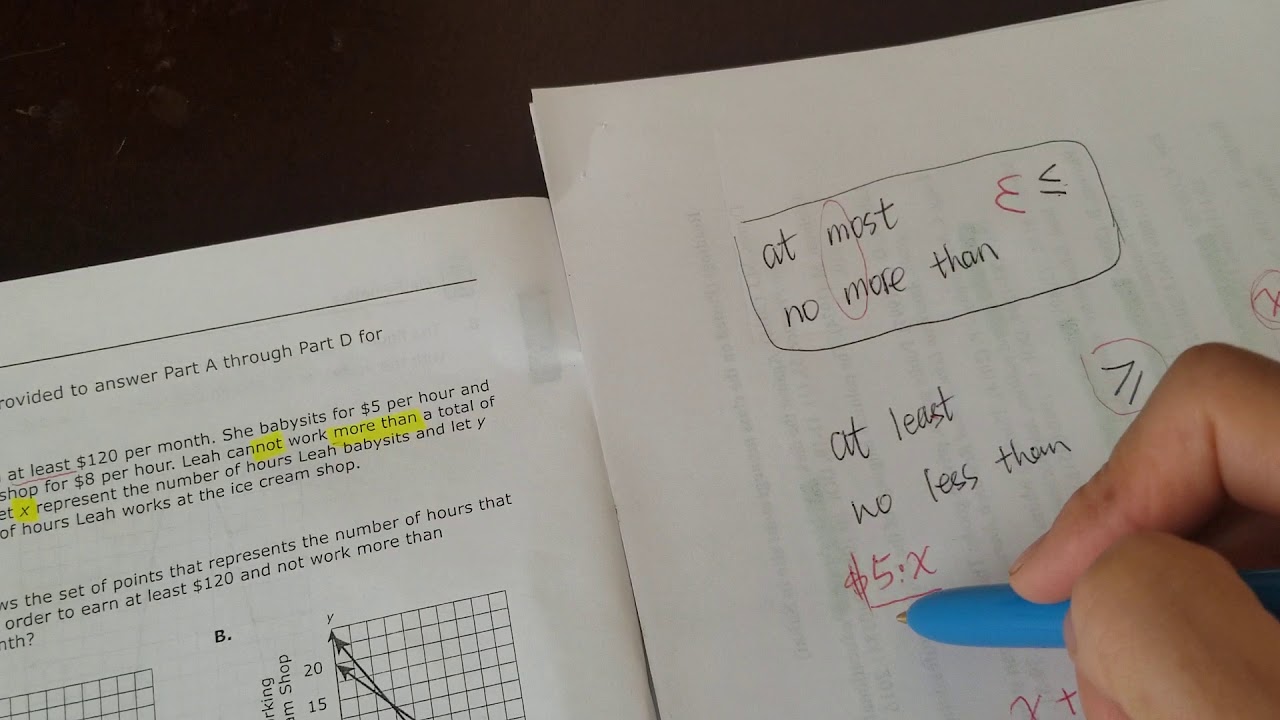 rovided to answer Part A through Part D for
at least $120 per month. She babysits for $5 per hour and
shop for $8 per hour. Leah cannot work more than a total of
et x represent the number of hours Leah babysits and let y
of hours Leah works at the ice cream shop.
ws the set of points that represents the number of hours that
order to earn at least $120 and not work more than
nth?
B.
y
20
15
rking
am Shop
at most ≤
no more than
at least ≥
no less than
$5:x
x +
x